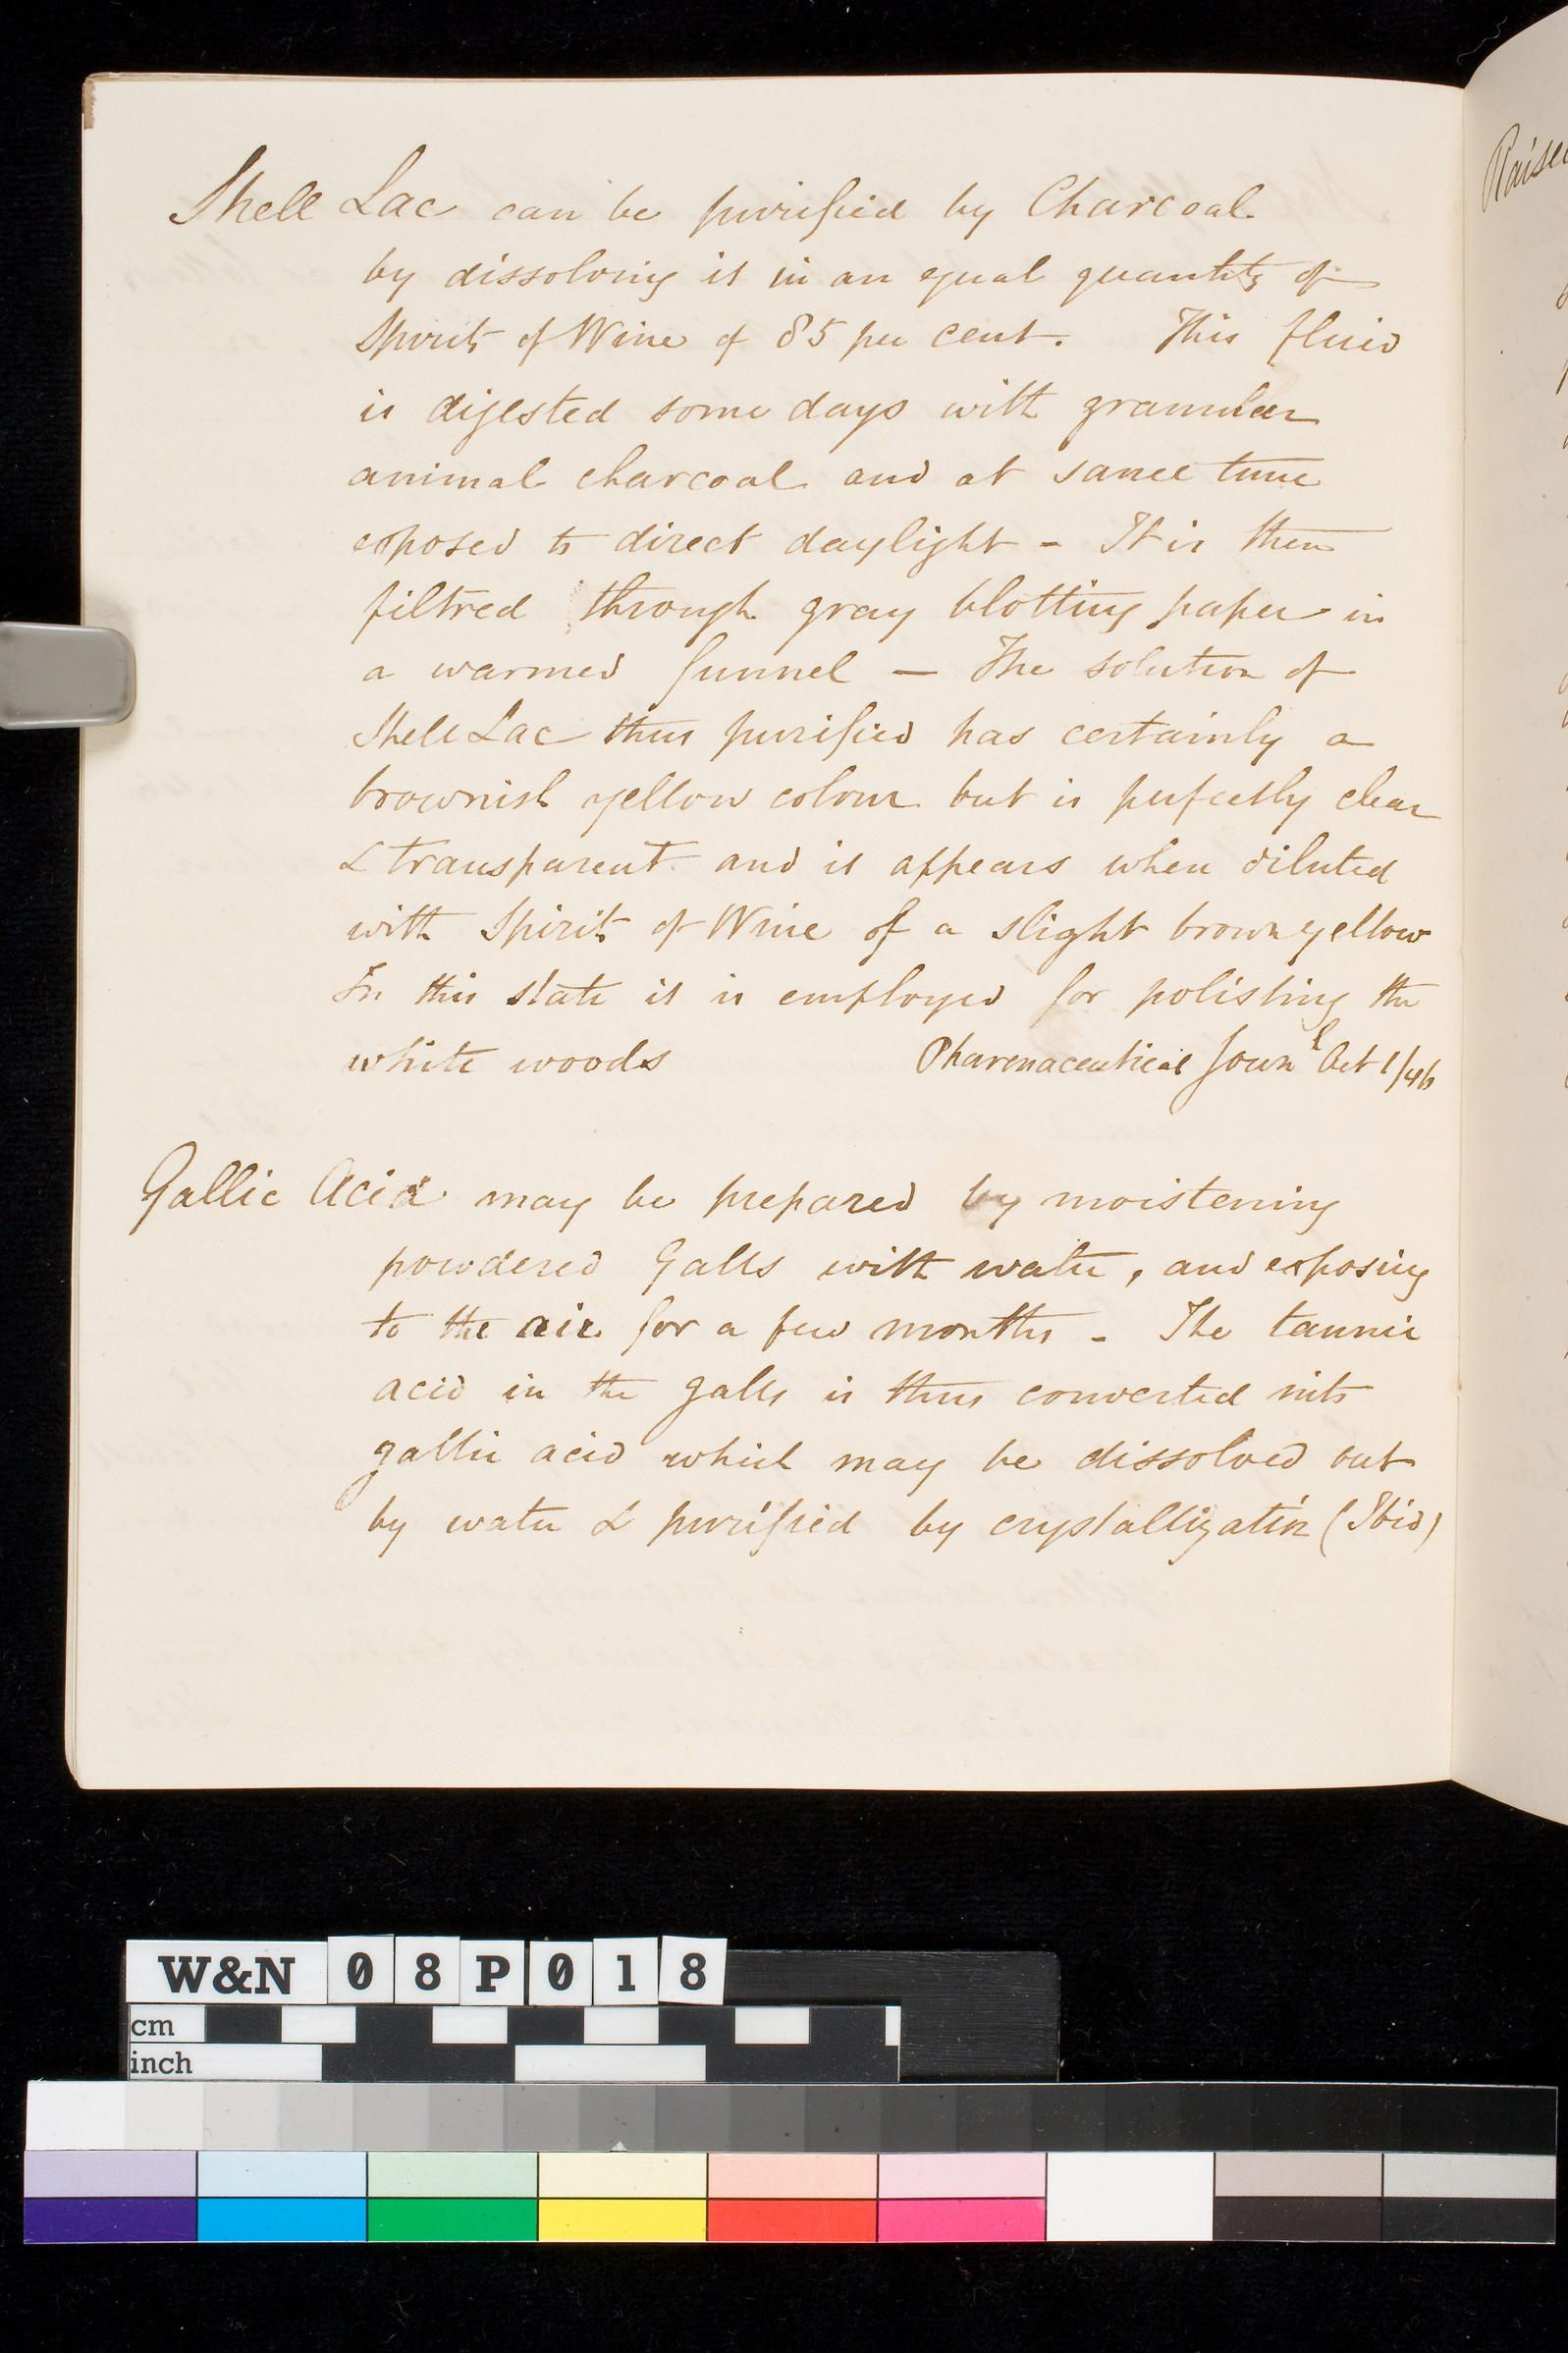 Shell Lac can be purified by Charcoal
by dissolving it in an equal quantity of
Spirits of Wine of 85 per cent. This fluid
is digested some days with granular
animal charcoal and at same time
exposed to direct daylight - It is then
filtred through gray blotting paper in
a warmed funnel — The solution of
Shell Lac thus purified has certainly a
brownish yellow colour but is perfectly clear
& transparent and it appears when diluted
with Spirits of Wine of a slight brown yellow
In this state it is employed for polishing the
white woods Pharmaceutical Journl Oct 1/46
Gallic Acid may be prepared by moistening
powdered Galls with water, and exposing
to the air for a few months - The tannic
acid in the galls is thus converted into
gallic acid which may be dissolved out
by water & purified by crystallization (Ibid)
W&N 08P018
cm
inch